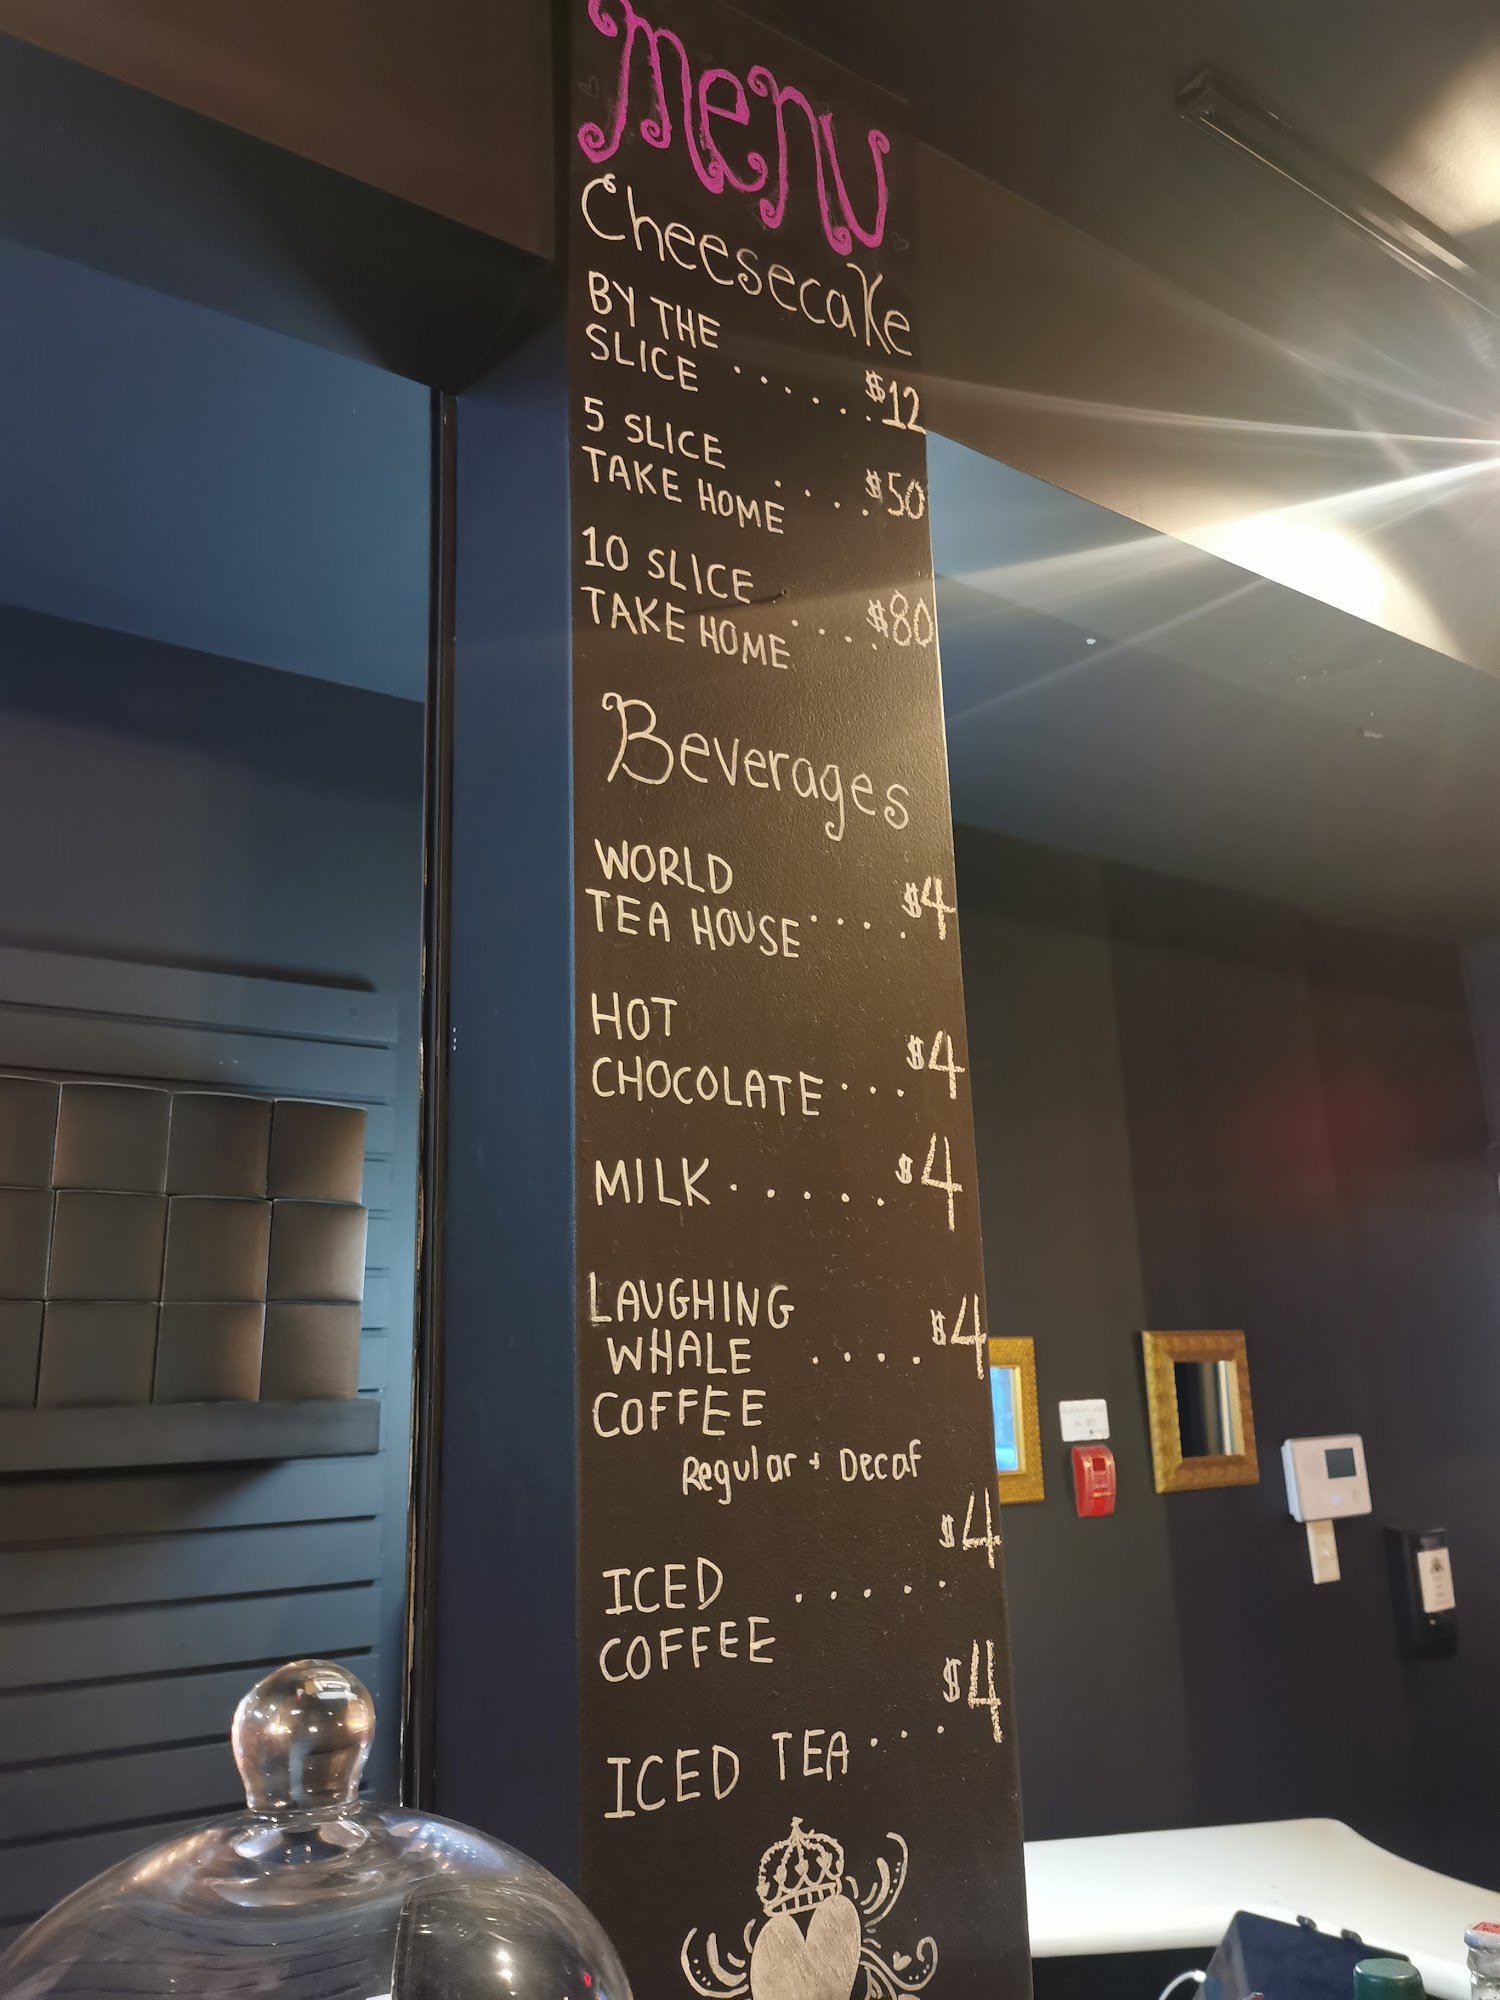 Menu
Cheesecake
BY THE
SLICE ...... $12
5 SLICE
TAKE HOME .... $50
10 SLICE
TAKE HOME .... $80
Beverages
WORLD
TEA HOUSE .... $4
HOT
CHOCOLATE ... $4
MILK ...... $4
LAUGHING
WHALE .... $4
COFFEE
Regular + Decaf
ICED ..... $4
COFFEE
ICED TEA ... $4